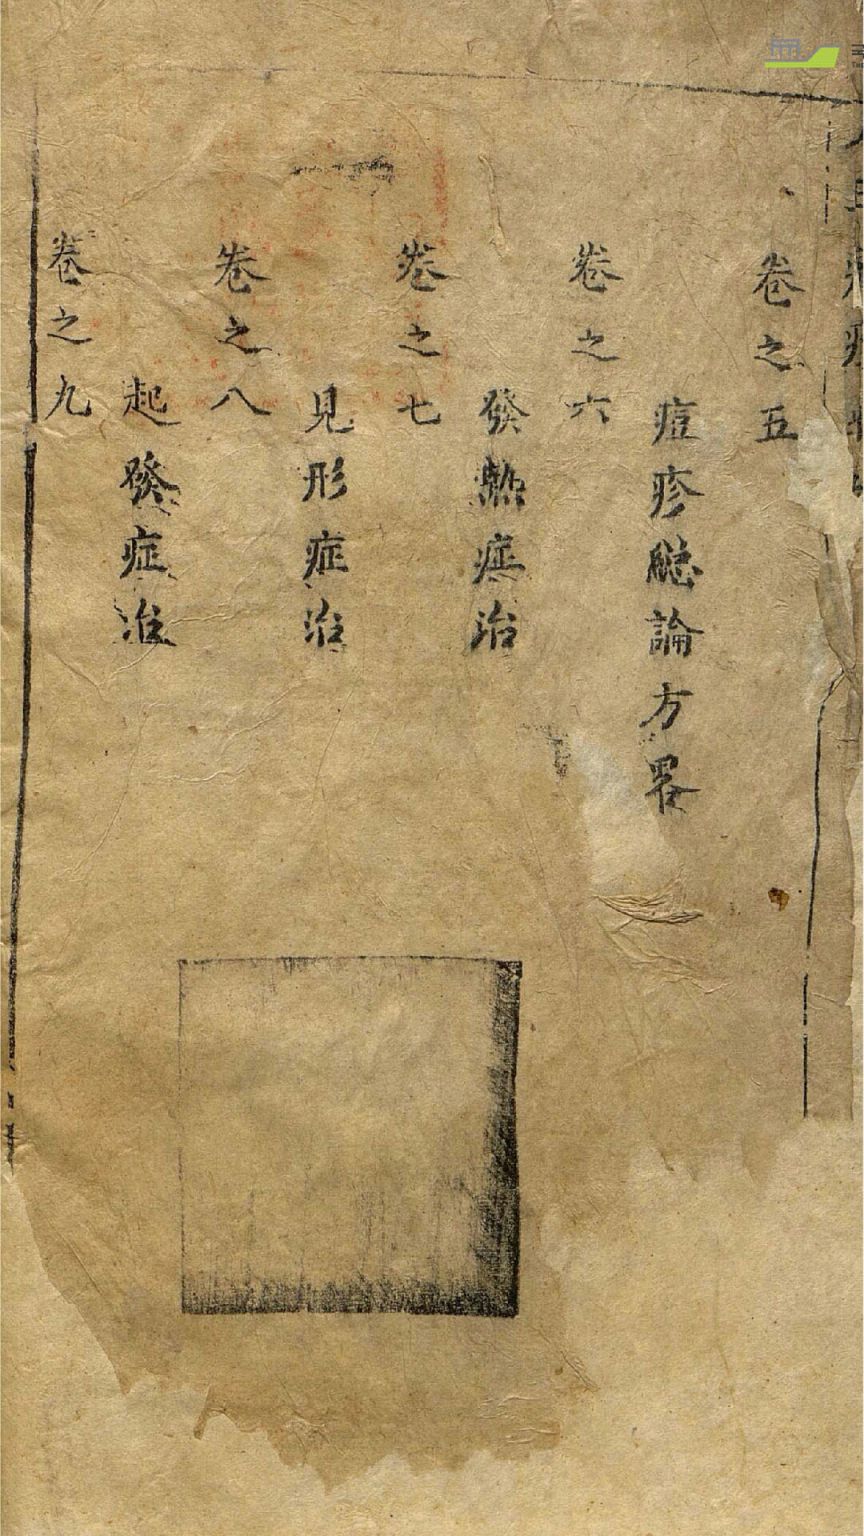 卷之五
痘疹總論方畧
卷之六
發熱症治
卷之七
見形症治
卷之八
起發症治
卷之九